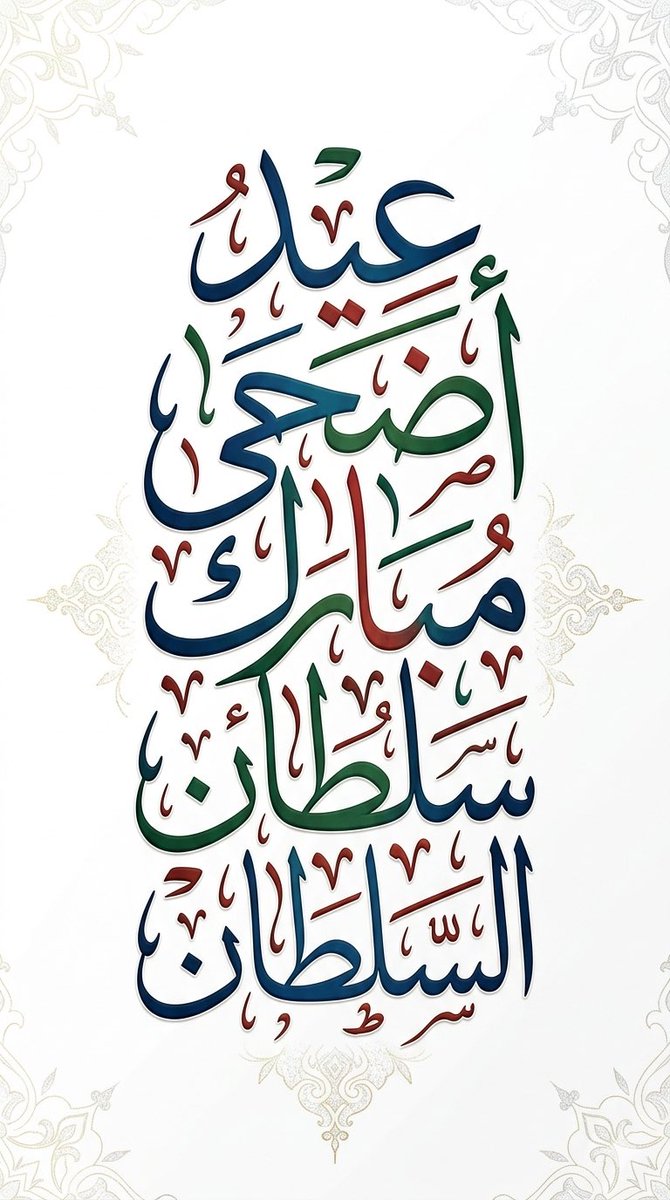 عِيْدُ
أَضْحَى
مُبَارَك
سَلْطَان
السَّلْطَان